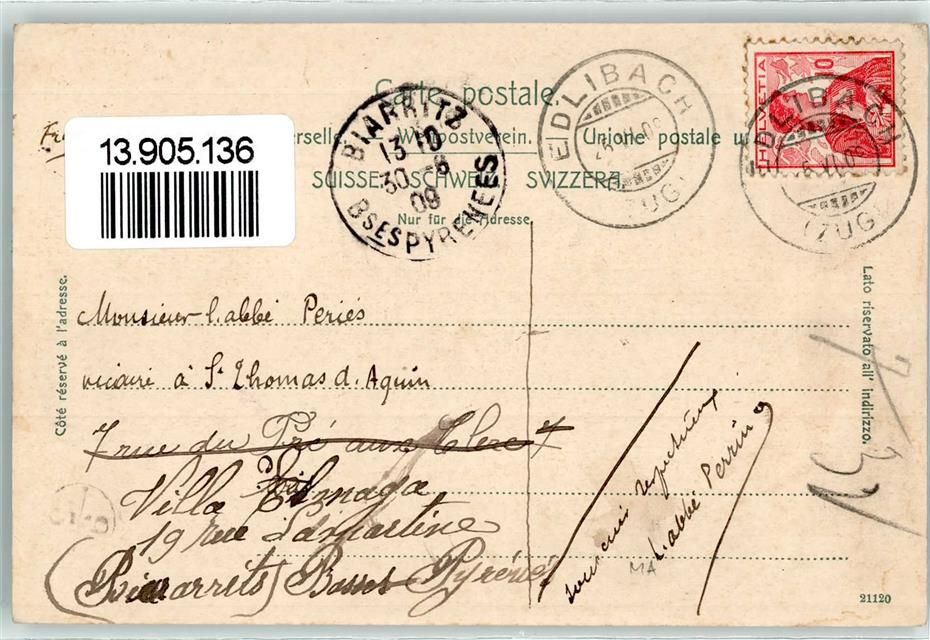 Carte postale.
13.905.136
Weltpostverein. Union postale
SUISSE. SCHWEIZ. SVIZZERA.
Nur für die Adresse.
BIARRITZ
13 10
30 -6
09
BSES PYRENEES
EDLIBACH
(ZUG)
HELVETIA
10
EDLIBACH
(ZUG)
Côté réservé à l'adresse.
Lato riservato all' indirizzo.
Monsieur l. abbé Periés
vicaire à St Thomas d. Aquin
7 rue du Pré aux Clercs 7
Villa
19 rue Lamartine
(Biarrits) Basses Pyrénées
souvenir respectueux
L'abbé Perrin
MA
21120